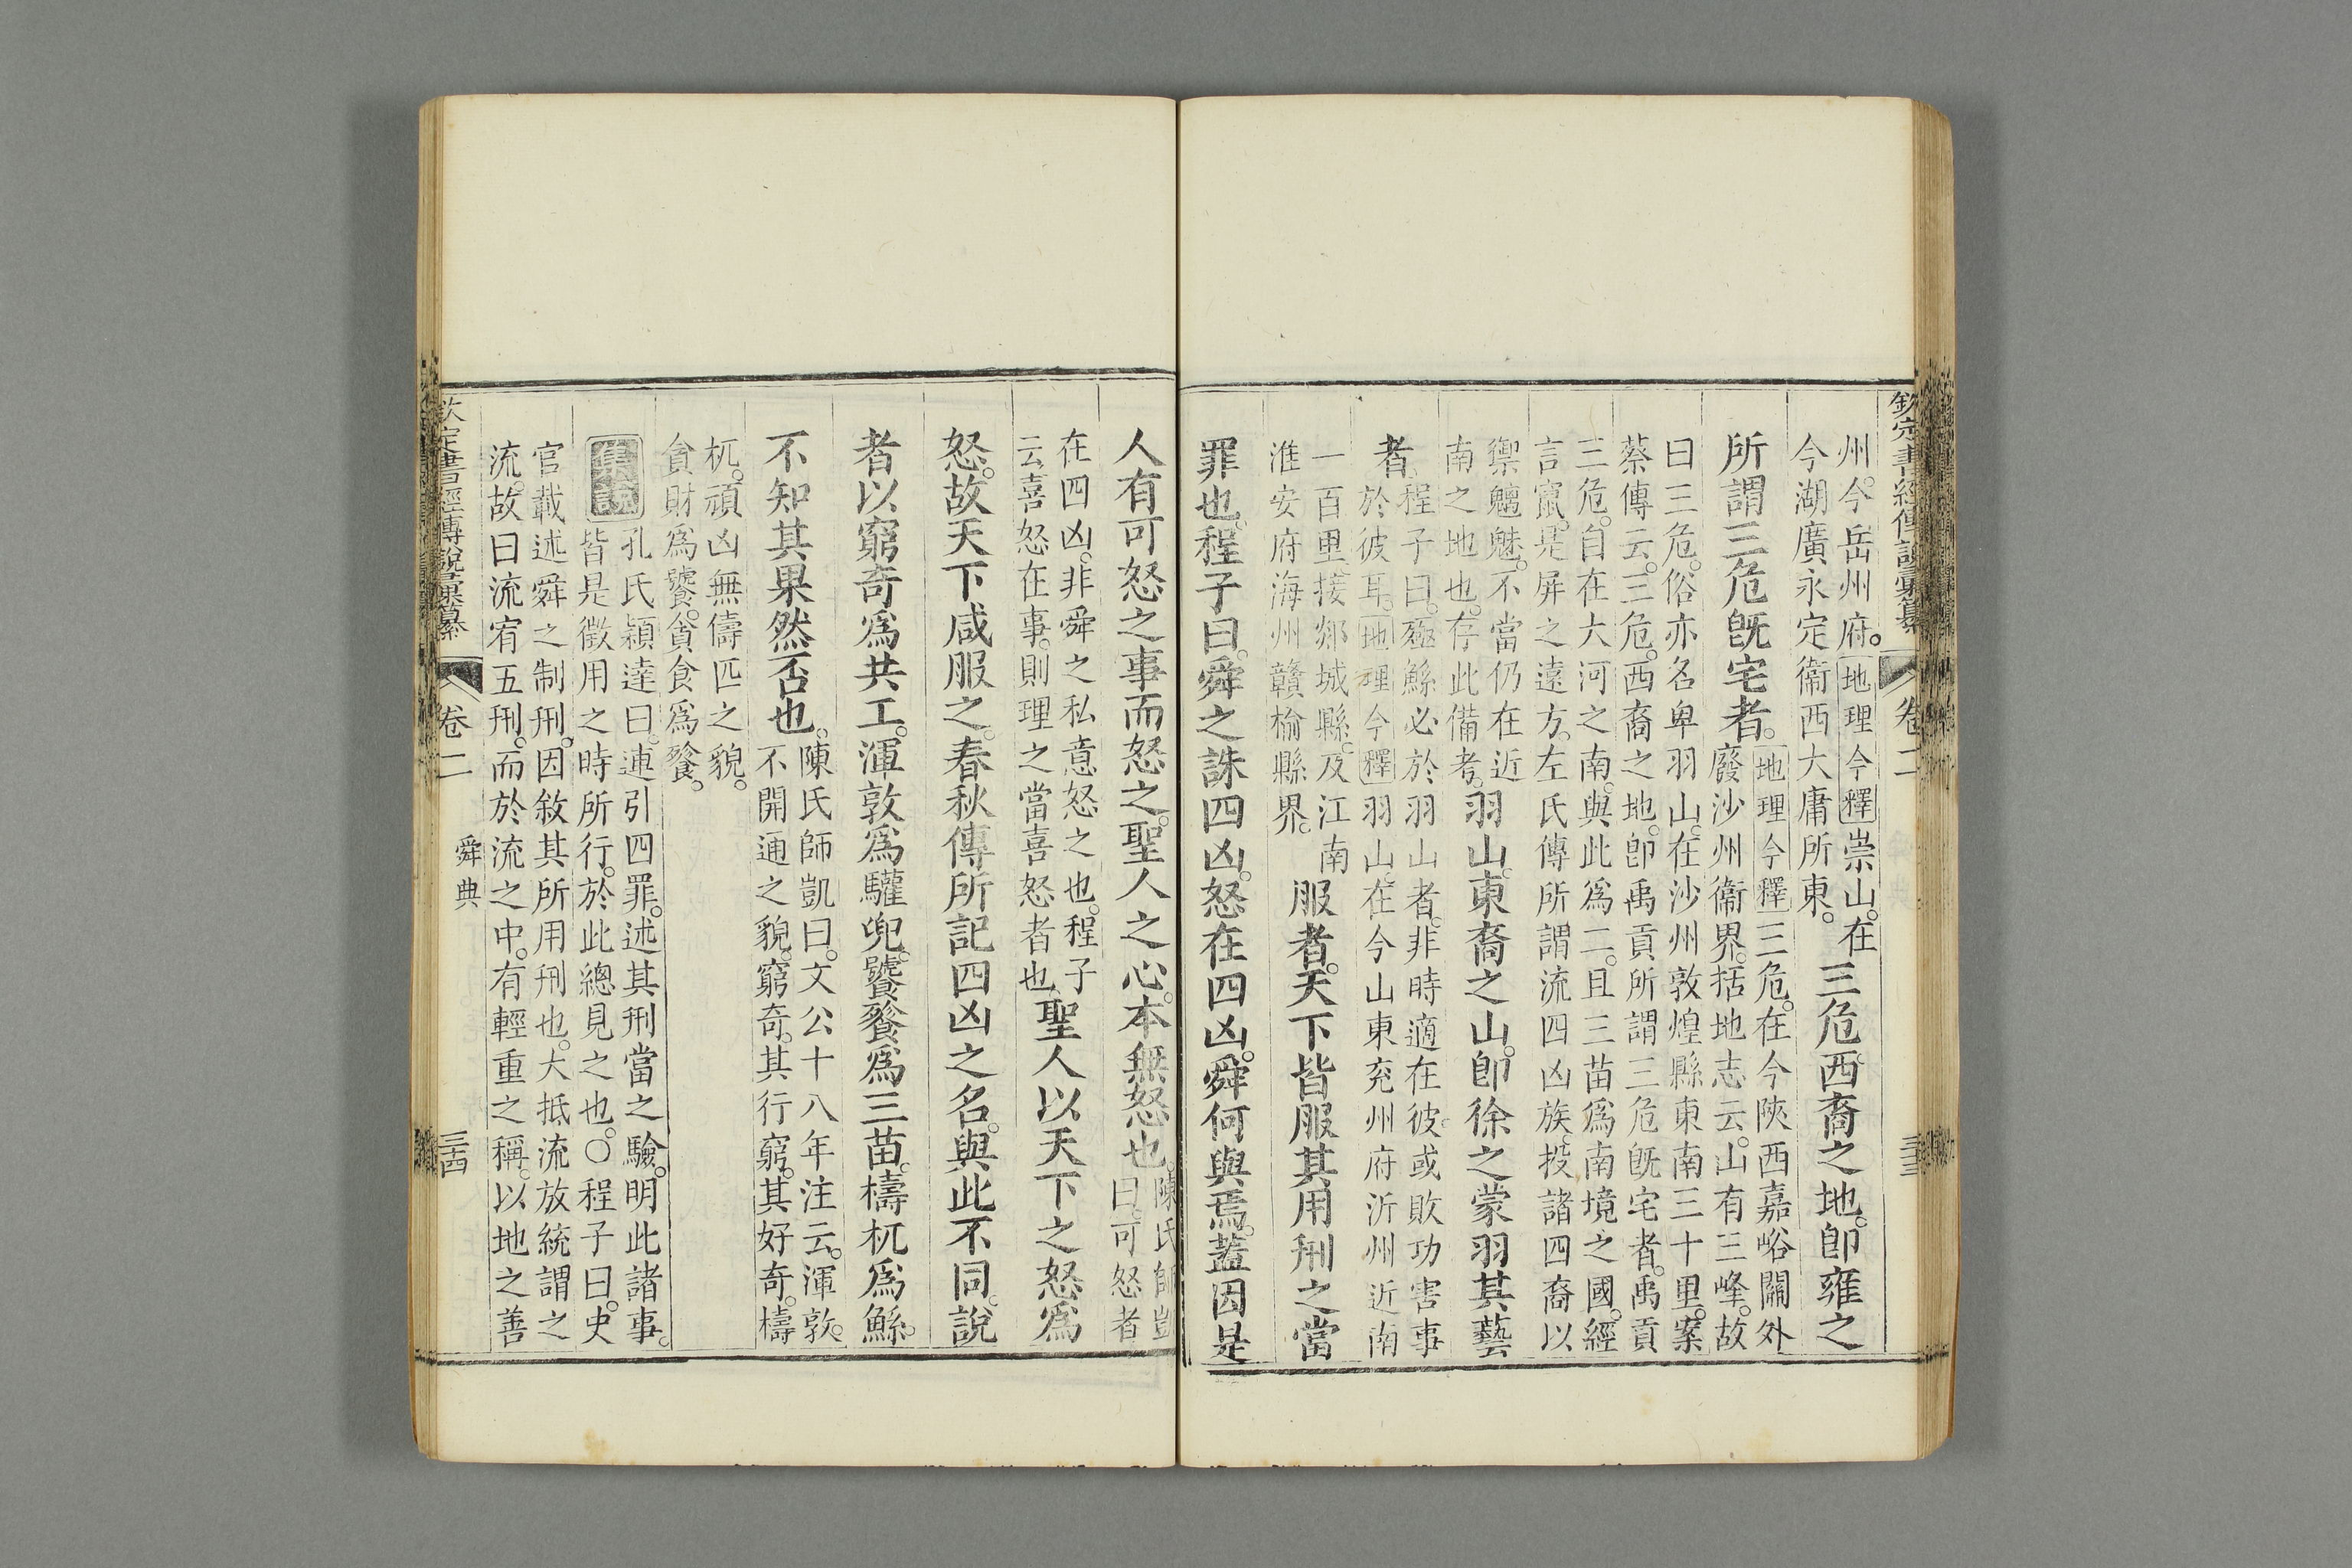 欽定書經傳說彙纂 卷二 三三
州。今岳州府。地理今釋崇山。在
今湖廣永定衞西大庸所東。
三危。西裔之地。卽雍之
所謂三危旣宅者。
地理今釋三危。在今陝西嘉峪關外
廢沙州衞界。括地志云。山有三峰。故
曰三危。俗亦名卑羽山。在沙州敦煌縣東南三十里。案
蔡傳云。三危。西裔之地。卽禹貢所謂三危旣宅者。禹貢
三危。自在大河之南。與此爲二。且三苗爲南境之國。經
言竄。是屏之遠方。左氏傳所謂流四凶族。投諸四裔以
禦魑魅。不當仍在近
南之地也。存此備考。
羽山。東裔之山。卽徐之蒙羽其藝
者。
程子曰。殛鯀必於羽山者。非時適在彼。或敗功害事
於彼耳。地理今釋羽山。在今山東兗州府沂州近南
一百里。接郯城縣。及江南
淮安府海州贛榆縣界。
服者。天下皆服其用刑之當
罪也。程子曰。舜之誅四凶。怒在四凶。舜何與焉。蓋因是
人有可怒之事而怒之。聖人之心。本無怒也。
陳氏師凱
曰。可怒者
在四凶。非舜之私意怒之也。程子
云喜怒在事。則理之當喜怒者也
聖人以天下之怒爲
怒。故天下咸服之。春秋傳所記四凶之名。與此不同。說
者以窮奇爲共工。渾敦爲驩兜。饕餮爲三苗。檮杌爲鯀。
不知其果然否也。
陳氏師凱曰。文公十八年注云。渾敦。
不開通之貌。窮奇。其行窮。其好奇。檮
杌。頑凶無儔匹之貌。
貪財爲饕。貪食爲餮。
集說
孔氏穎達曰。連引四罪。述其刑當之驗。明此諸事。
皆是徵用之時所行。於此總見之也。〇程子曰。史
官載述舜之制刑。因敘其所用刑也。大抵流放統謂之
流。故曰流宥五刑。而於流之中。有輕重之稱。以地之善
欽定書經傳說彙纂 卷二 舜典 三四